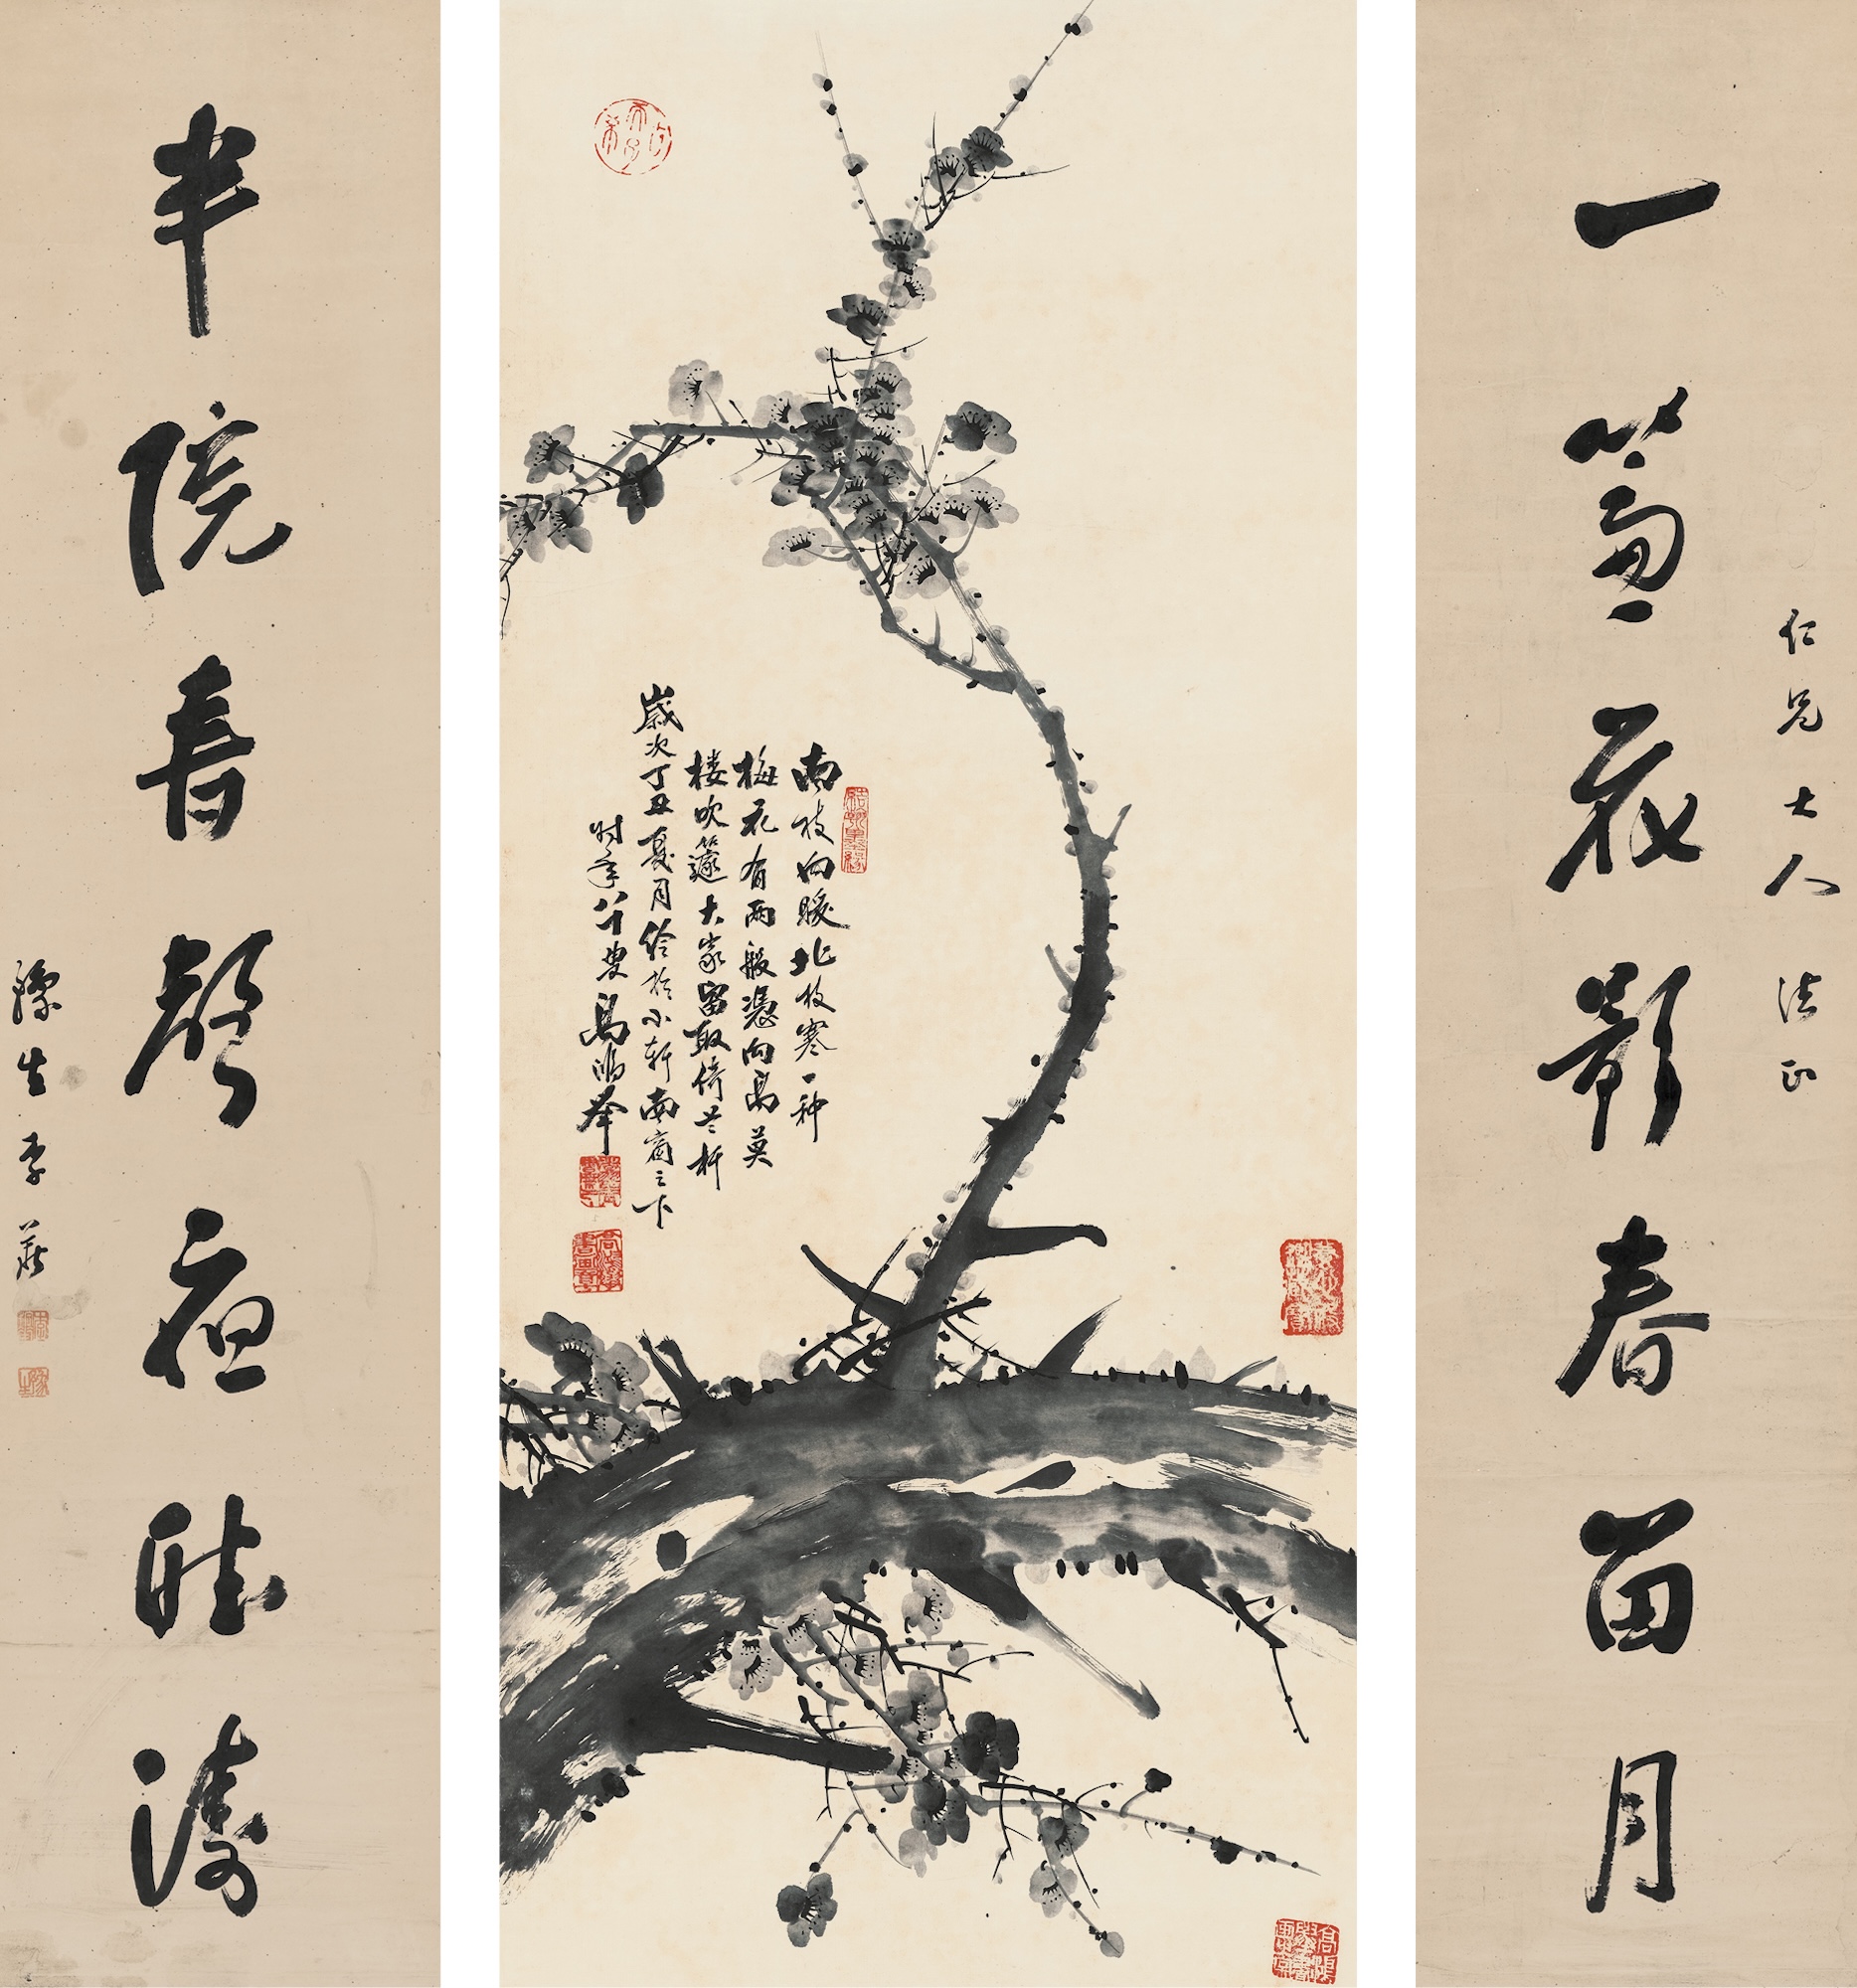 仁兄大人 法正
一簾花影春留月
南枝向暖北枝寒一种
梅花有两般憑向高莫
楼吹篴大家留取倚兰杆
歲次丁丑夏月绘於小轩南窗之下
时年八十叟高鸿举
半院書聲夜聴濤
豫生李